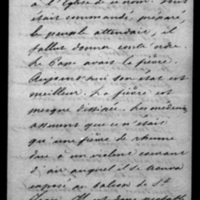 à l'Eglise de ce nom. Tout
était commandé, préparé,
le peuple attendait, il
fallut donner contre ordre
le Pape avait la fièvre.
Aujourd'hui son état est
meilleur. La fièvre est
presque dissipée. Les médecins
assurent que ce n'était
qu'une fièvre de rhume
due à un violent courant
d'air auquel il se trouva
exposé au salon de St